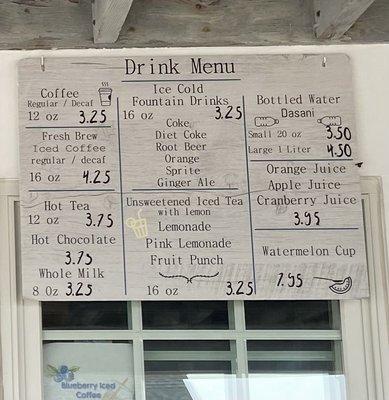 Drink Menu
Coffee
Regular / Decaf
12 oz 3.25
Fresh Brew
Iced Coffee
regular / decaf
16 oz 4.25
Hot Tea
12 oz 3.75
Hot Chocolate
3.75
Whole Milk
8 Oz 3.25
Ice Cold
Fountain Drinks
16 oz 3.25
Coke
Diet Coke
Root Beer
Orange
Sprite
Ginger Ale
Unsweetened Iced Tea
with lemon
Lemonade
Pink Lemonade
Fruit Punch
16 oz 3.25
Bottled Water
Dasani
Small 20 oz 3.50
Large 1 Liter 4.50
Orange Juice
Apple Juice
Cranberry Juice
3.95
Watermelon Cup
7.95
Blueberry Iced
Coffee